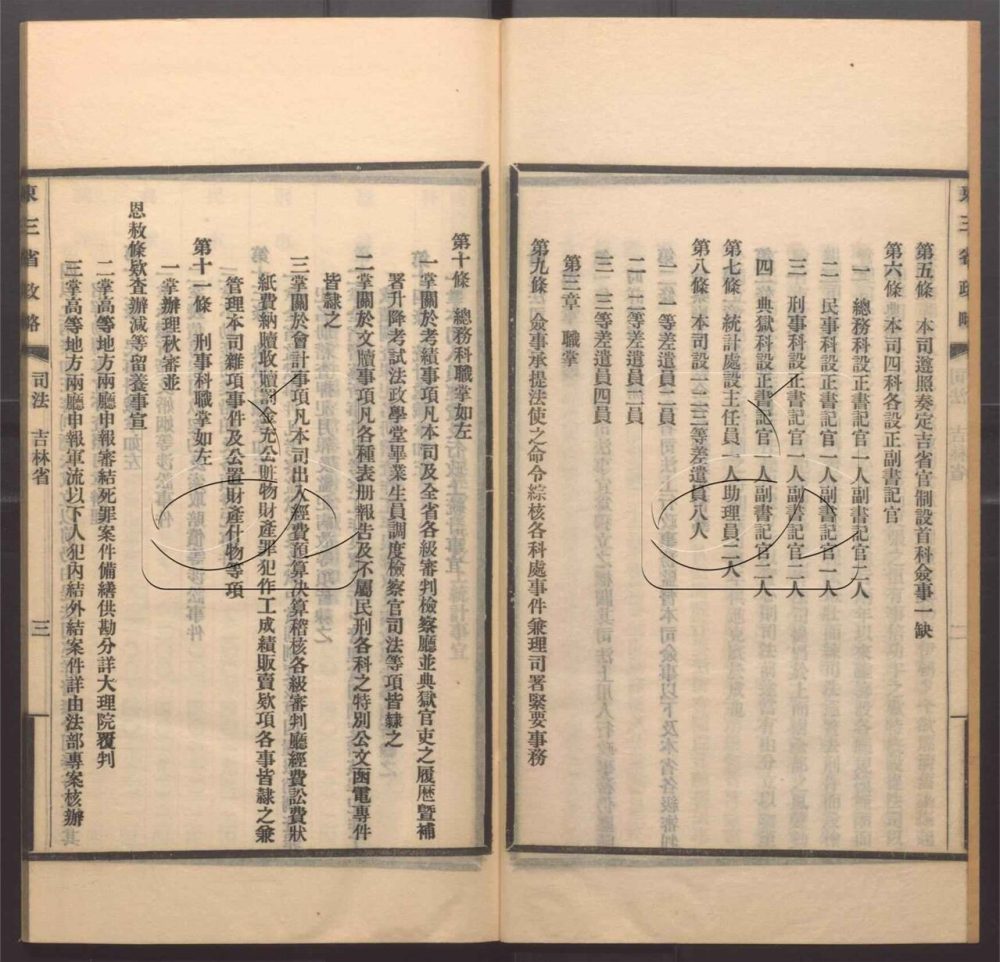 東三省政略
第五條　本司遵照奏定吉省官制設首科僉事一缺
第六條　本司四科各設正副書記官
一　總務科設正書記官一人副書記官二人
二　民事科設正書記官一人副書記官一人
三　刑事科設正書記官一人副書記官二人
四　典獄科設正書記官一人副書記官二人
第七條　統計處設主任員一人助理員二人
第八條　本司設一二三等差遣員八人
一　一等差遣員二員
二　二等差遣員二員
三　三等差遣員四員
第三章　職掌
第九條　僉事承提法使之命令綜核各科處事件兼理司署緊要事務
第十條　總務科職掌如左
一掌關於考績事項凡本司及全省各級審判檢察廳並典獄官吏之履歷暨補
署升降考試法政學堂畢業生員調度檢察官司法等項皆隸之
二掌關於文牘事項凡各種表册報告及不屬民刑各科之特別公文函電專件
皆隸之
三掌關於會計事項凡本司出入經費預算決算稽核各級審判廳經費訟費狀
紙費納贖收贖罰金充公贓物財產罪犯作工成績販賣欵項各事皆隸之兼
管理本司雜項事件及公置財產什物等項
第十一條　刑事科職掌如左
一掌辦理秋審並
恩赦條欵查辦減等留養事宜
二掌高等地方兩廳申報審結死罪案件備繕供勘分詳大理院覆判
三掌高等地方兩廳申報軍流以下人犯內結外結案件詳由法部專案核辦
東三省政略
司法　吉林省
三